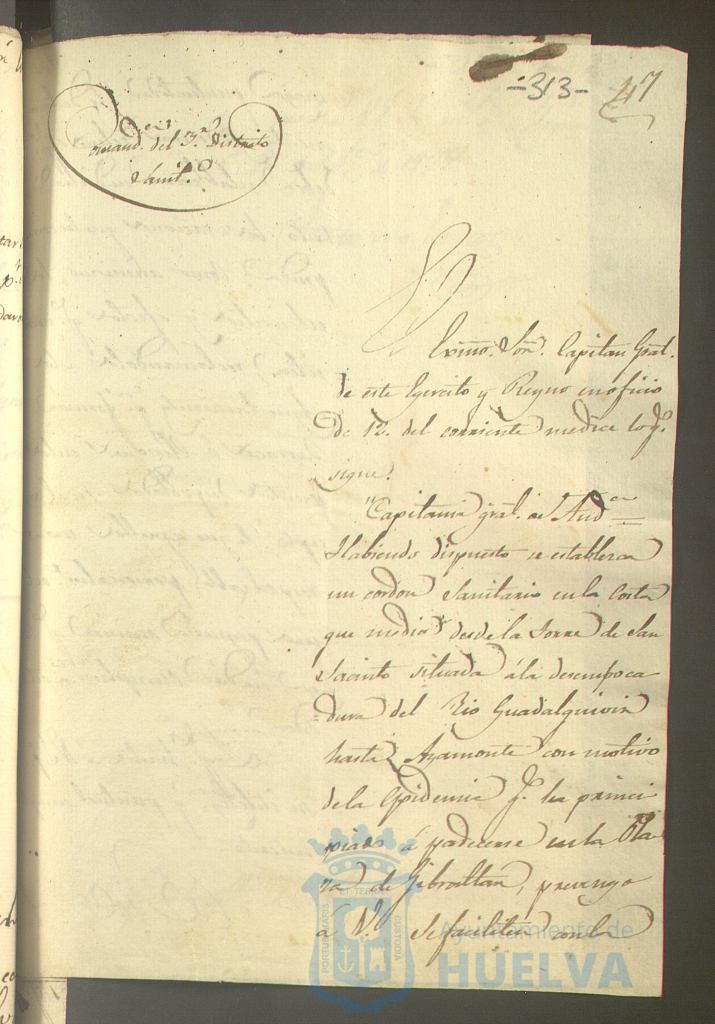 -313- 47
Comand.ª del 3.er Distrito
Sanit.º
Exmo. Sõr. Capitan Gral.
de este Egercito y Reyno en oficio
de 12. del corriente me dice lo q.e
sigue.
"Capitania gral. de And.cia
Habiendo dispuesto se establezca
un cordon Sanitario en la Costa
que media desde la Torre de San
Jacinto situada á la desemboca
=dura del Rio Guadalquivir
hasta Ayamonte con motivo
de la Epidemia q.e ha princi
piado á padecerse en la Pla
za de Gibraltar, prevengo
á V. Se faciliten con la
EL TERRAE
PORTUS MARIS
CUSTODIA
Ayuntamiento de
HUELVA